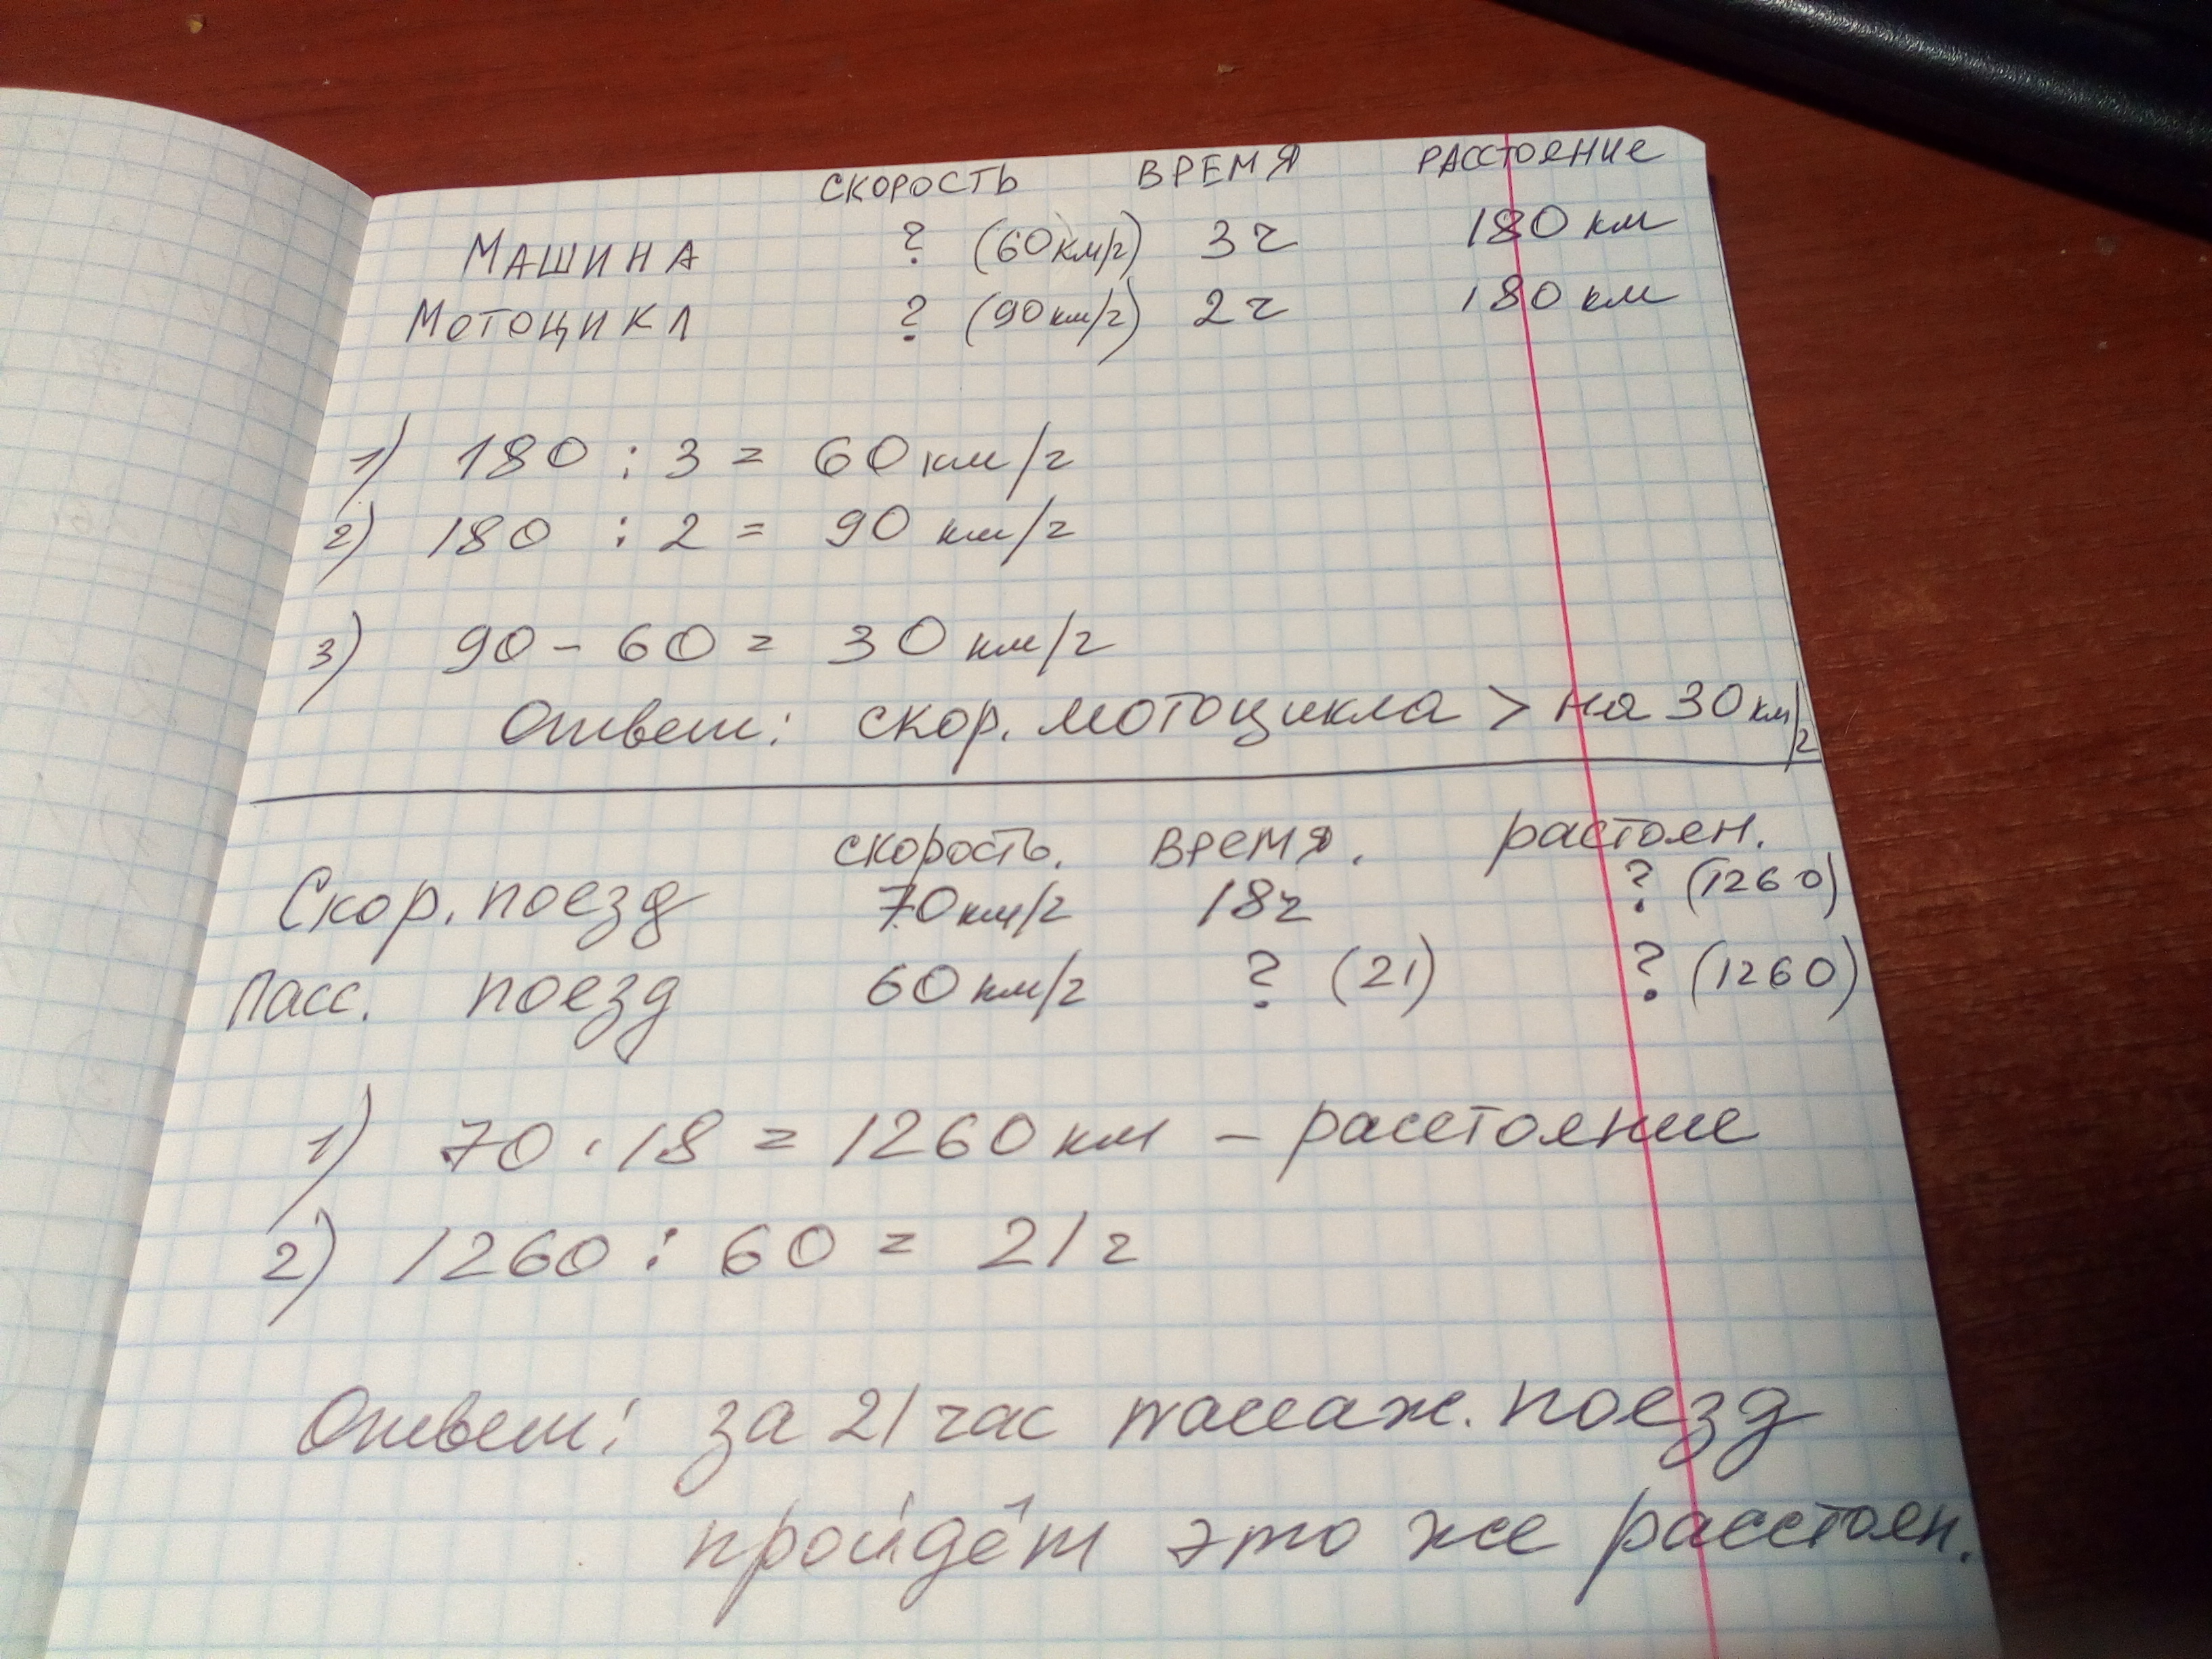 СКОРОСТЬ ВРЕМЯ РАССТОЯНИЕ
МАШИНА ? (60км/ч) 3ч 180 км
МОТОЦИКЛ ? (90км/ч) 2ч 180 км
1) 180 : 3 = 60 км/ч
2) 180 : 2 = 90 км/ч
3) 90 - 60 = 30 км/ч
Ответ: скор. мотоцикла > на 30 км/ч
скорость. время. растоян.
Скор. поезд 70км/ч 18ч ? (1260)
Пасс. поезд 60км/ч ? (21) ? (1260)
1) 70 · 18 = 1260 км – расстояние
2) 1260 : 60 = 21 ч
Ответ: за 21 час пассаж. поезд
пройдёт это же расстоян.